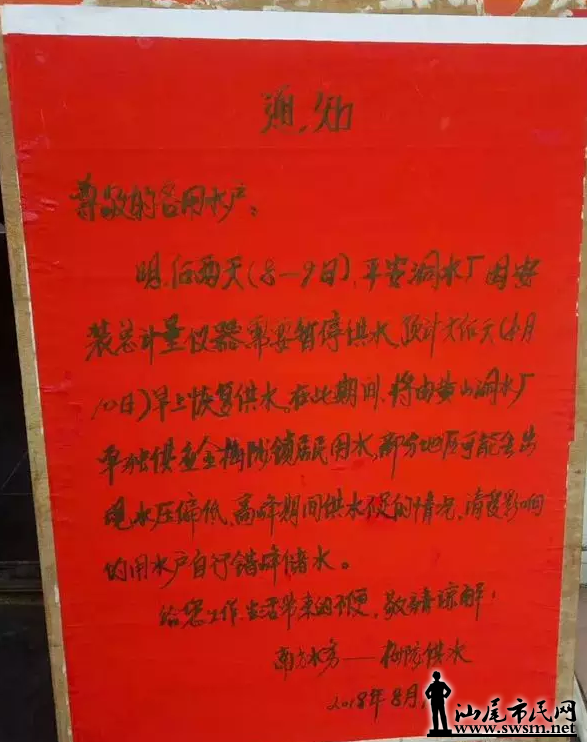 通知
尊敬的各用水户：
明、后两天（8—9日），平安洞水厂因安
装总计量仪器需要暂停供水，预计大后天（8月
10日）早上恢复供水。在此期间，将由黄山洞水厂
单独供应全梅陇镇居民用水，部分地区可能会出
现水压偏低、高峰期间供水不足的情况，请受影响
的用水户自行错峰储水。
给您工作、生活带来的不便，敬请谅解！
南方水务——梅陇供水
2018年8月
汕尾市民网
www.swsm.net